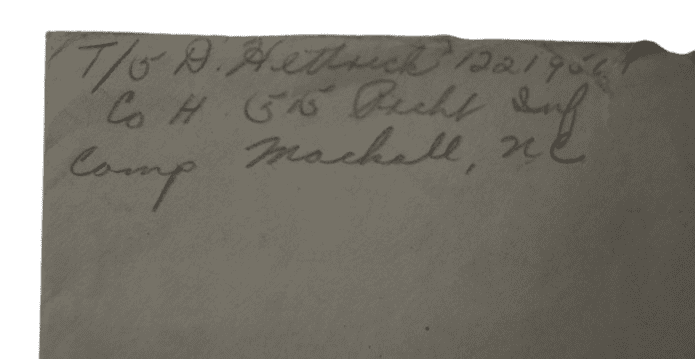 T/5 D. Hettrick
Co H 515 Prcht Inf
Camp Mackall, NC